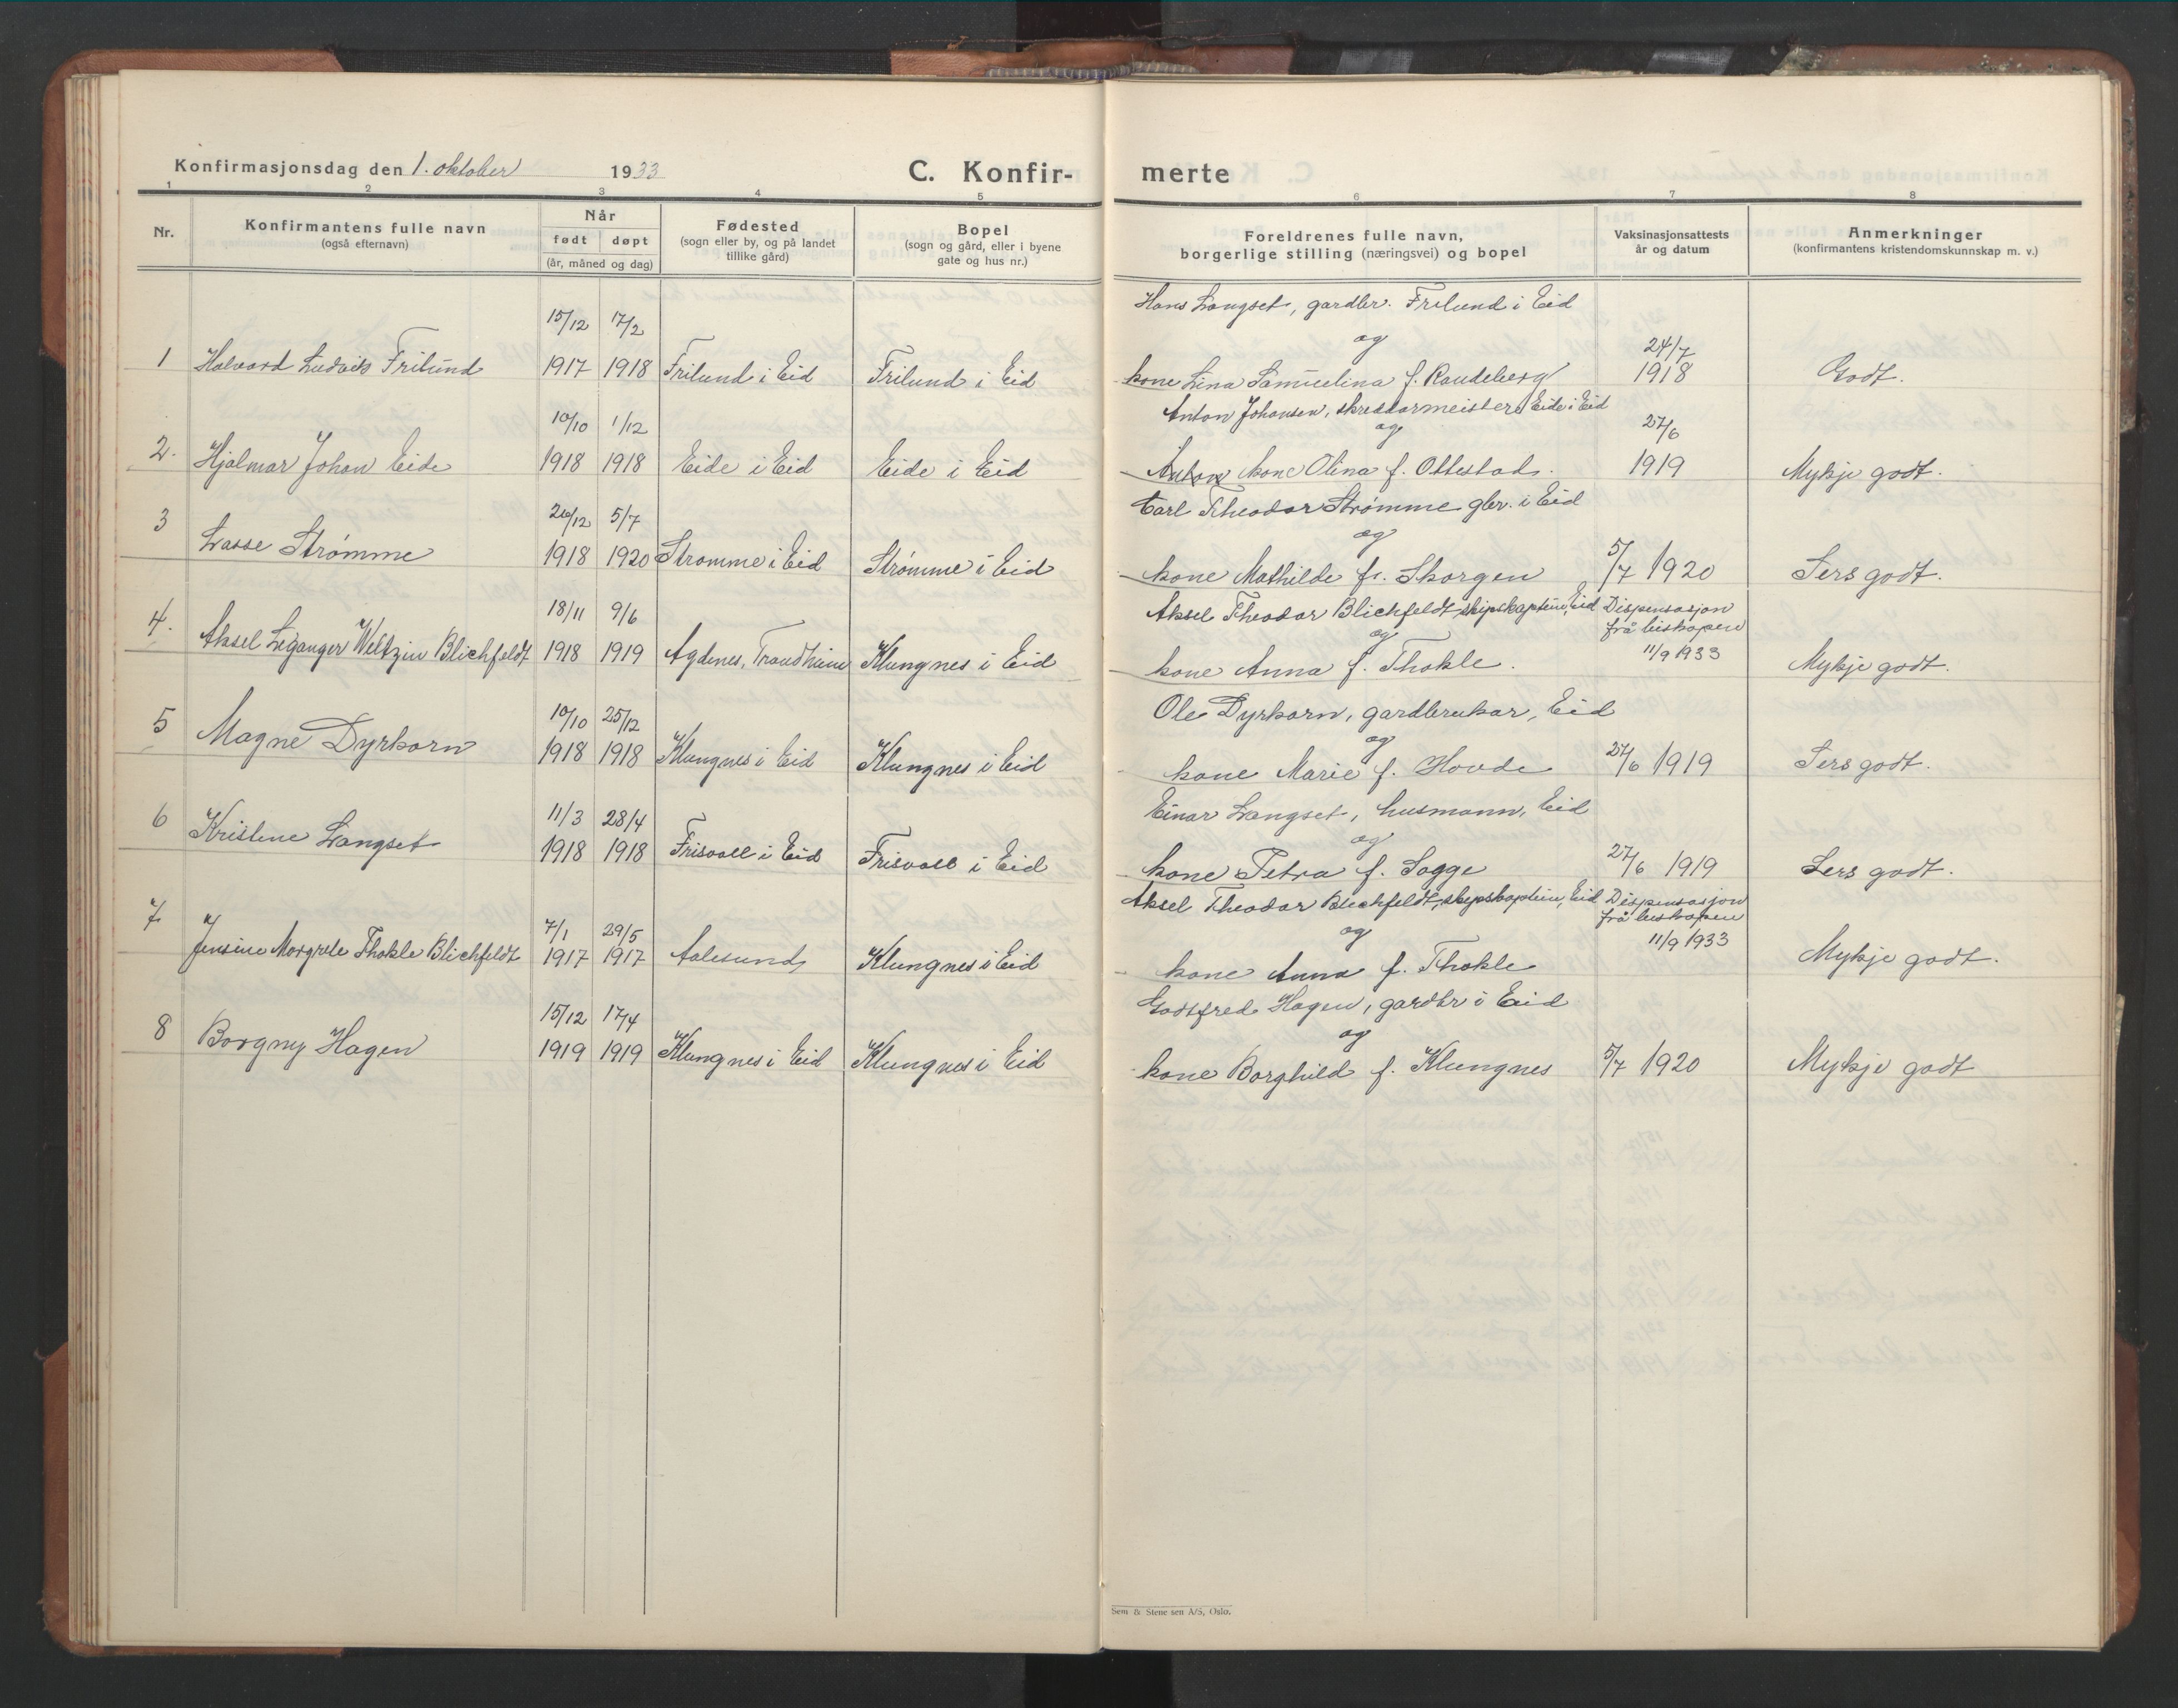 Konfirmasjonsdag den 1. oktober 1933
C. Konfir-
merte
1 2 3 4 5 6 7 8
Nr.
Konfirmantens fulle navn
(også efternavn)
Når
født døpt
(år, måned og dag)
Fødested
(sogn eller by, og på landet
tillike gård)
Bopel
(sogn og gård, eller i byene
gate og hus nr.)
Foreldrenes fulle navn,
borgerlige stilling (næringsvei) og bopel
Vaksinasjonsattests
år og datum
Anmerkninger
(konfirmantens kristendomskunnskap m. v.)
15/12 17/2 Hans Langset, gardbr. Frilund i Eid
og 24/7
1 Halvard Ludvik Frilund 1917 1918 Frilund i Eid Frilund i Eid kone Lina Samuelina f. Raudeberg 1918 Godt.
10/10 1/12 Anton Johansen, skreddarmeister, Eide i Eid
og 27/6
2. Hjalmar Johan Eide 1918 1918 Eide i Eid Eide i Eid Anton kone Olina f. Ottestad. 1919 Mykje godt.
26/12 5/7 Carl Theodor Strømme gbr. i Eid
og
3 Lasse Strømme 1918 1920 Strømme i Eid Strømme i Eid kone Mathilde f. Skorgen 5/7 1920 Sers godt.
18/11 9/6 Aksel Theodor Blichfeldt, skipskaptein, Eid Dispensasjon
og frå biskopen
4. Aksel Leganger Weltzin Blichfeldt 1918 1919 Agdenes, Trondheim Klungnes i Eid kone Anna f. Thokle. 11/9 1933 Mykje godt.
10/10 25/12 Ole Dyrkorn, gardbrukar, Eid
og
5 Magne Dyrkorn 1918 1918 Klungnes i Eid Klungnes i Eid kone Marie f. Hovde 27/6 1919 Sers godt.
11/3 28/4 Einar Langset, husmann, Eid
og
6 Kristine Langset 1918 1918 Frisvoll i Eid Frisvoll i Eid kone Petra f. Sogge 27/6 1919 Sers godt.
7/1 29/5 Aksel Theodor Blichfeldt, skipskaptein, Eid Dispensasjon
og frå biskopen
7 Jensine Margrete Thokle Blichfeldt 1917 1917 Aalesund Klungnes i Eid kone Anna f. Thokle 11/9 1933 Mykje godt.
15/12 17/4 Godtfred Hagen, gardbr i Eid
og
8 Borgny Hagen 1919 1919 Klungnes i Eid Klungnes i Eid kone Borghild f. Klungnes 5/7 1920 Mykje godt
Sem & Stenersen A/S, Oslo.